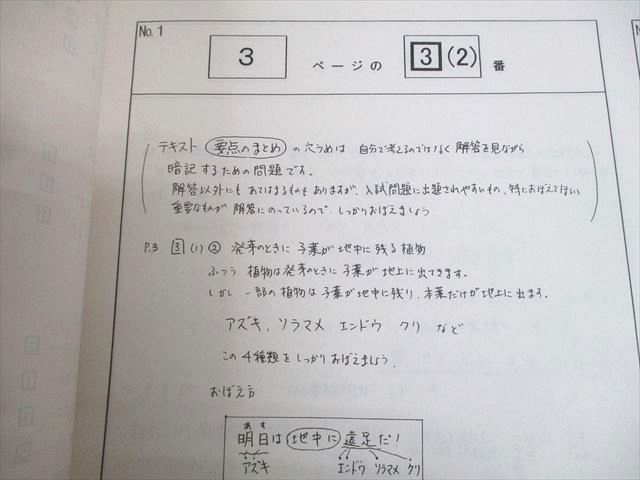 No. 1
3 ページの 3 (2) 番
テキスト 要点のまとめ の穴うめは 自分で考えるのではなく 解答を見ながら
暗記するための問題です。
解答以外にも あてはまるものも ありますが、入試問題に出題されやすいもの、特におぼえてほしい
重要なものが 解答にのっているので、しっかりおぼえましょう
P.3 3 (1) ② 発芽のときに 子葉が 地中に残る植物
ふつう 植物は発芽のときに 子葉が 地上に出てきます。
しかし、一部の植物は 子葉が 地中に残り、本葉だけが 地上に出ます。
アズキ、ソラマメ エンドウ クリ など
この 4種類を しっかり おぼえましょう。
おぼえ方
あす
明日は 地中に 遠足だ!
アズキ エンドウ ソラマメ クリ